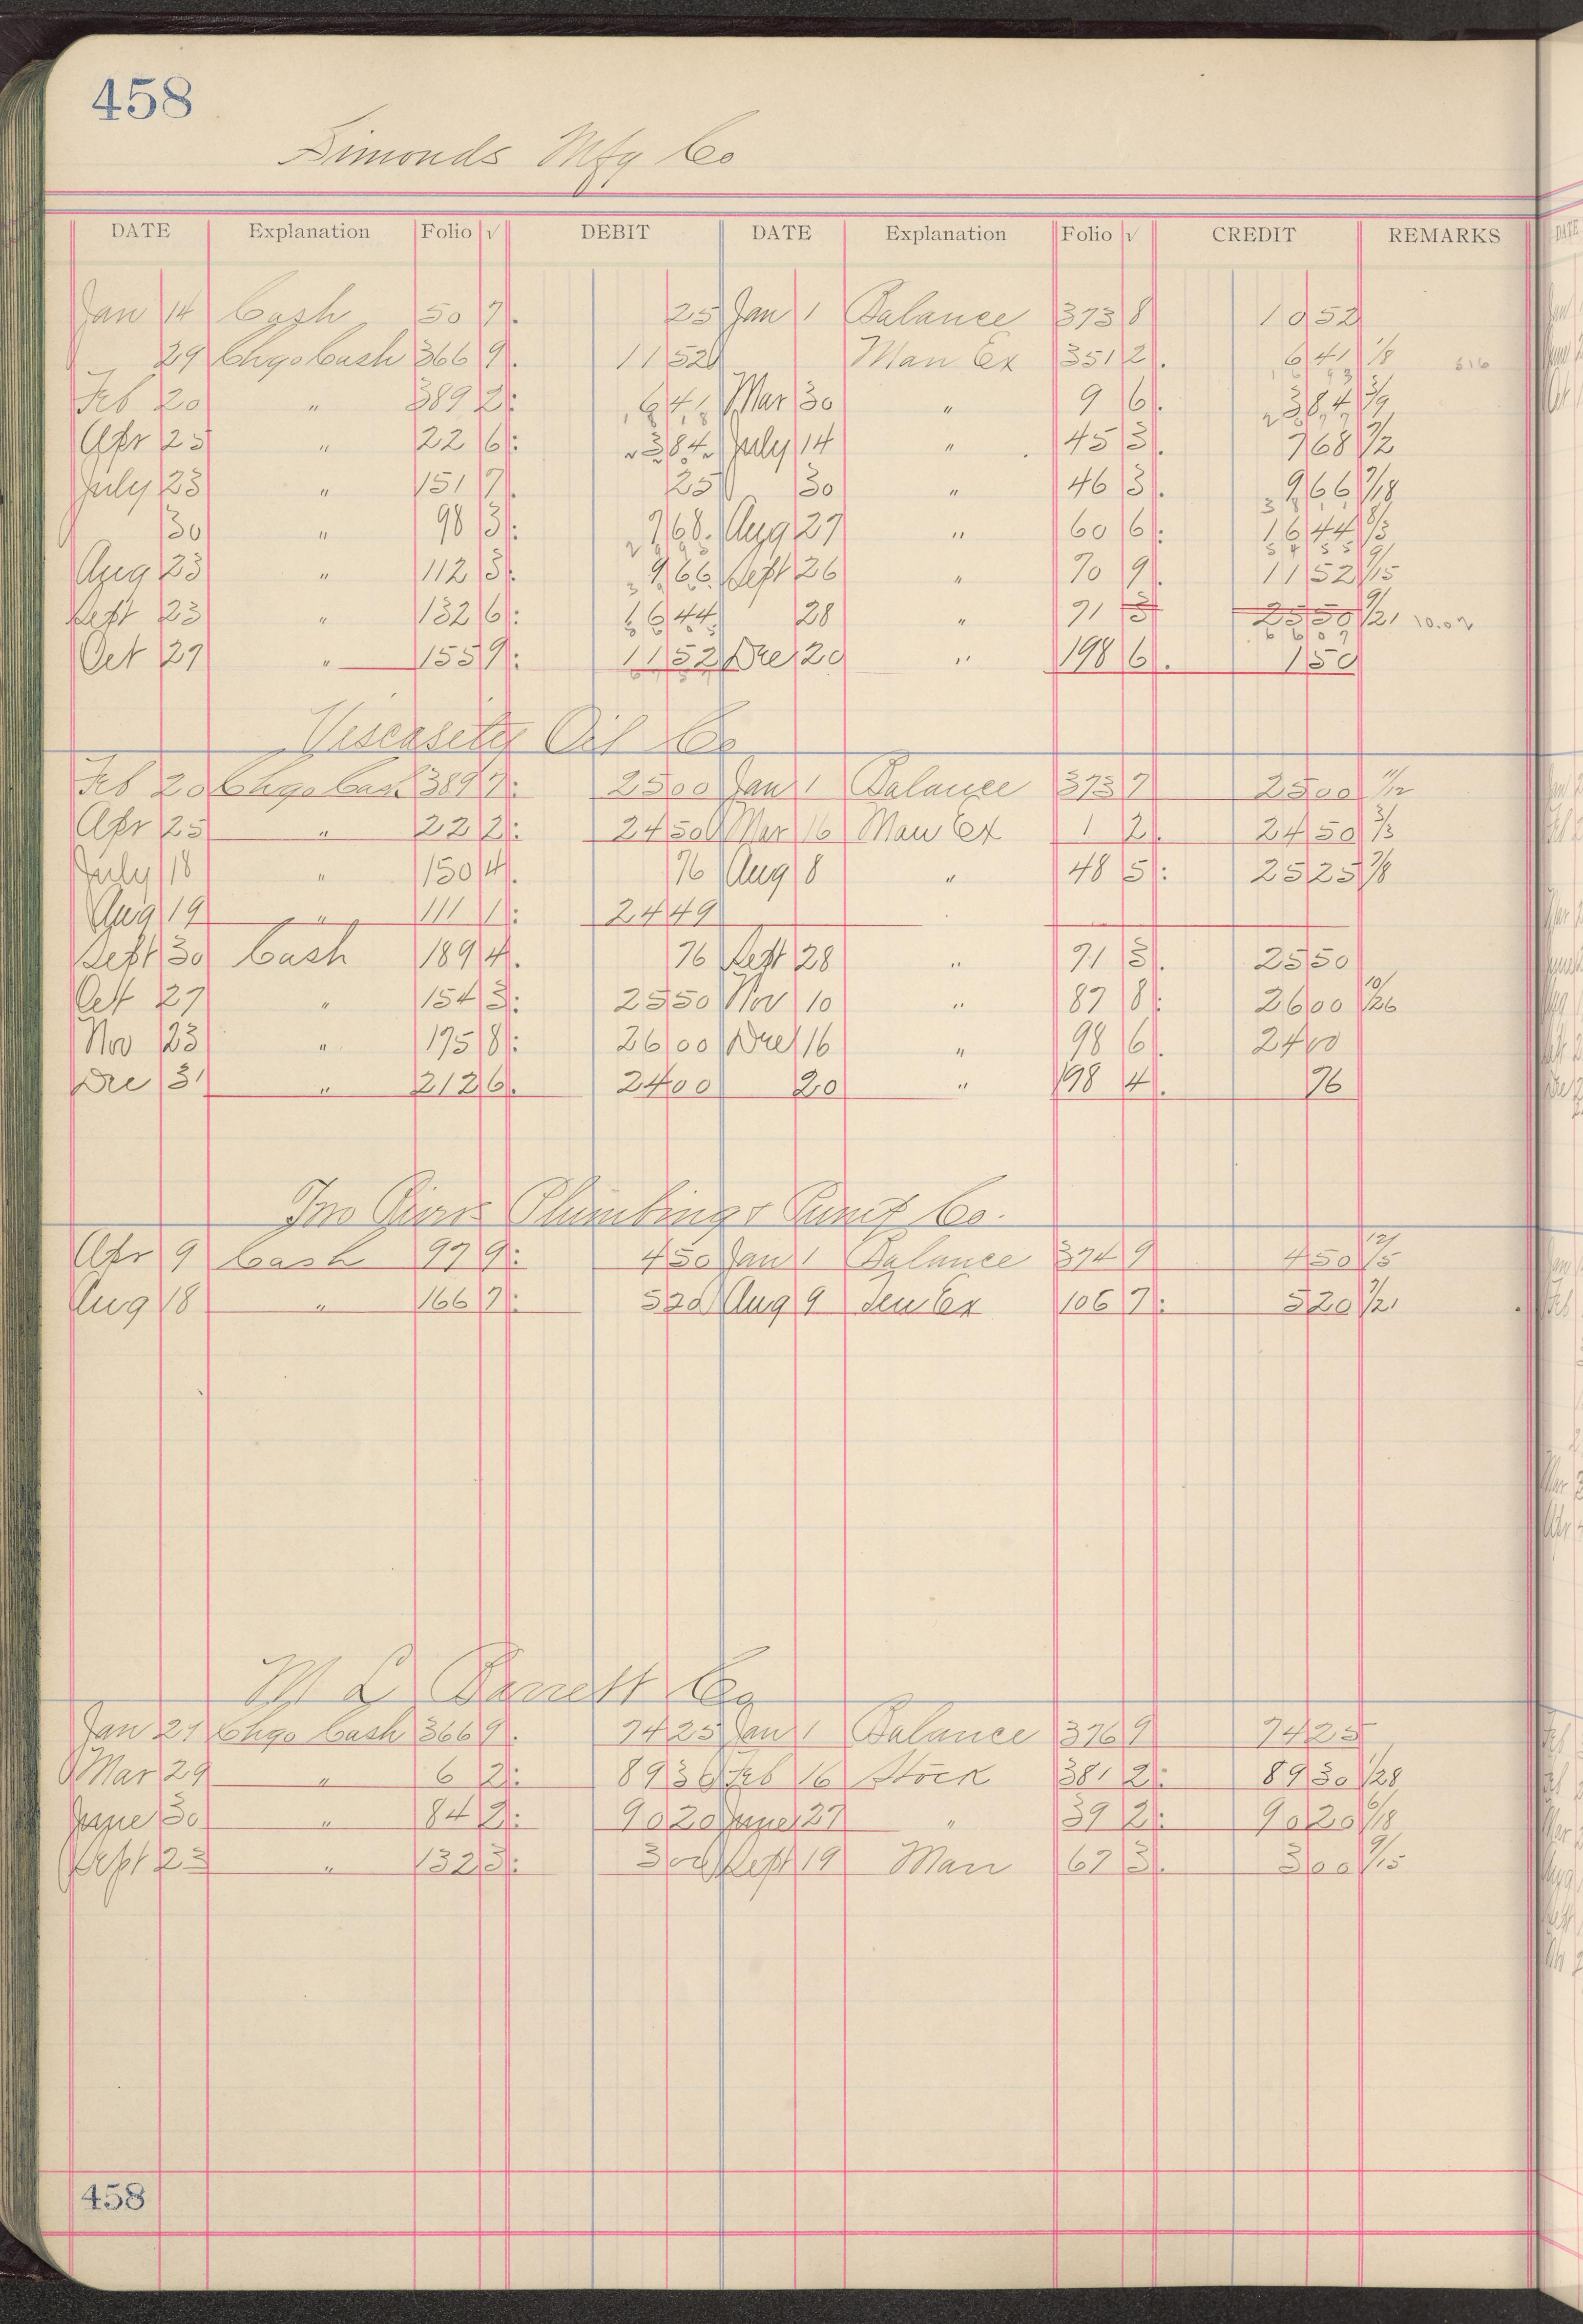 458
Simonds Mfg Co
DATE Explanation Folio √ DEBIT DATE Explanation Folio √ CREDIT REMARKS
Jan 14 Cash 50 7. 25 Jan 1 Balance 373 8 10 52
29 Chgo Cash 366 9. 11 52 Man Ex 351 2. 6 41 1/8 516
Feb 20 " 389 2: 6 41 Mar 30 " 9 6. 3 84 3/9
Apr 25 " 22 6: 3 84 July 14 " 45 3. 7 68 7/2
July 23 " 151 7. 25 30 " 46 3. 9 66 7/18
30 " 98 3: 7 68. Aug 27 " 60 6: 16 44 8/3
Aug 23 " 112 3: 9 66 Sept 26 " 70 9. 11 52 9/15
Sept 23 " 132 6: 16 44 28 " 71 3 25 50 9/21 10.02
Oct 27 " 155 9: 11 52 Dec 20 " 198 6. 1 50
Viscosity Oil Co
Feb 20 Chgo Cash 389 7: 25 00 Jan 1 Balance 373 7 25 00 11/12
Apr 25 " 22 2: 24 50 Mar 16 Man Ex 1 2. 24 50 3/3
July 18 " 150 4. 76 Aug 8 " 48 5: 25 25 7/8
Aug 19 " 111 1: 24 49
Sept 30 Cash 189 4. 76 Sept 28 " 71 3. 25 50
Oct 27 " 154 3: 25 50 Nov 10 " 87 8: 26 00 10/26
Nov 23 " 175 8: 26 00 Dec 16 " 98 6. 24 00
Dec 31 " 212 6. 24 00 20 " 198 4. 76
Two Rivers Plumbing & Pump Co.
Apr 9 Cash 97 9: 4 50 Jan 1 Balance 374 9 4 50 12/5
Aug 18 " 166 7: 5 20 Aug 9 Gen Ex 106 7: 5 20 7/21
M L Barrett Co
Jan 29 Chgo Cash 366 9. 74 25 Jan 1 Balance 376 9 74 25
Mar 29 " 6 2: 89 30 Feb 16 Stock 381 2: 89 30 1/28
June 30 " 84 2: 90 20 June 27 " 39 2: 90 20 6/18
Sept 23 " 132 3: 3 00 Sept 19 Man 67 3. 3 00 9/15
458